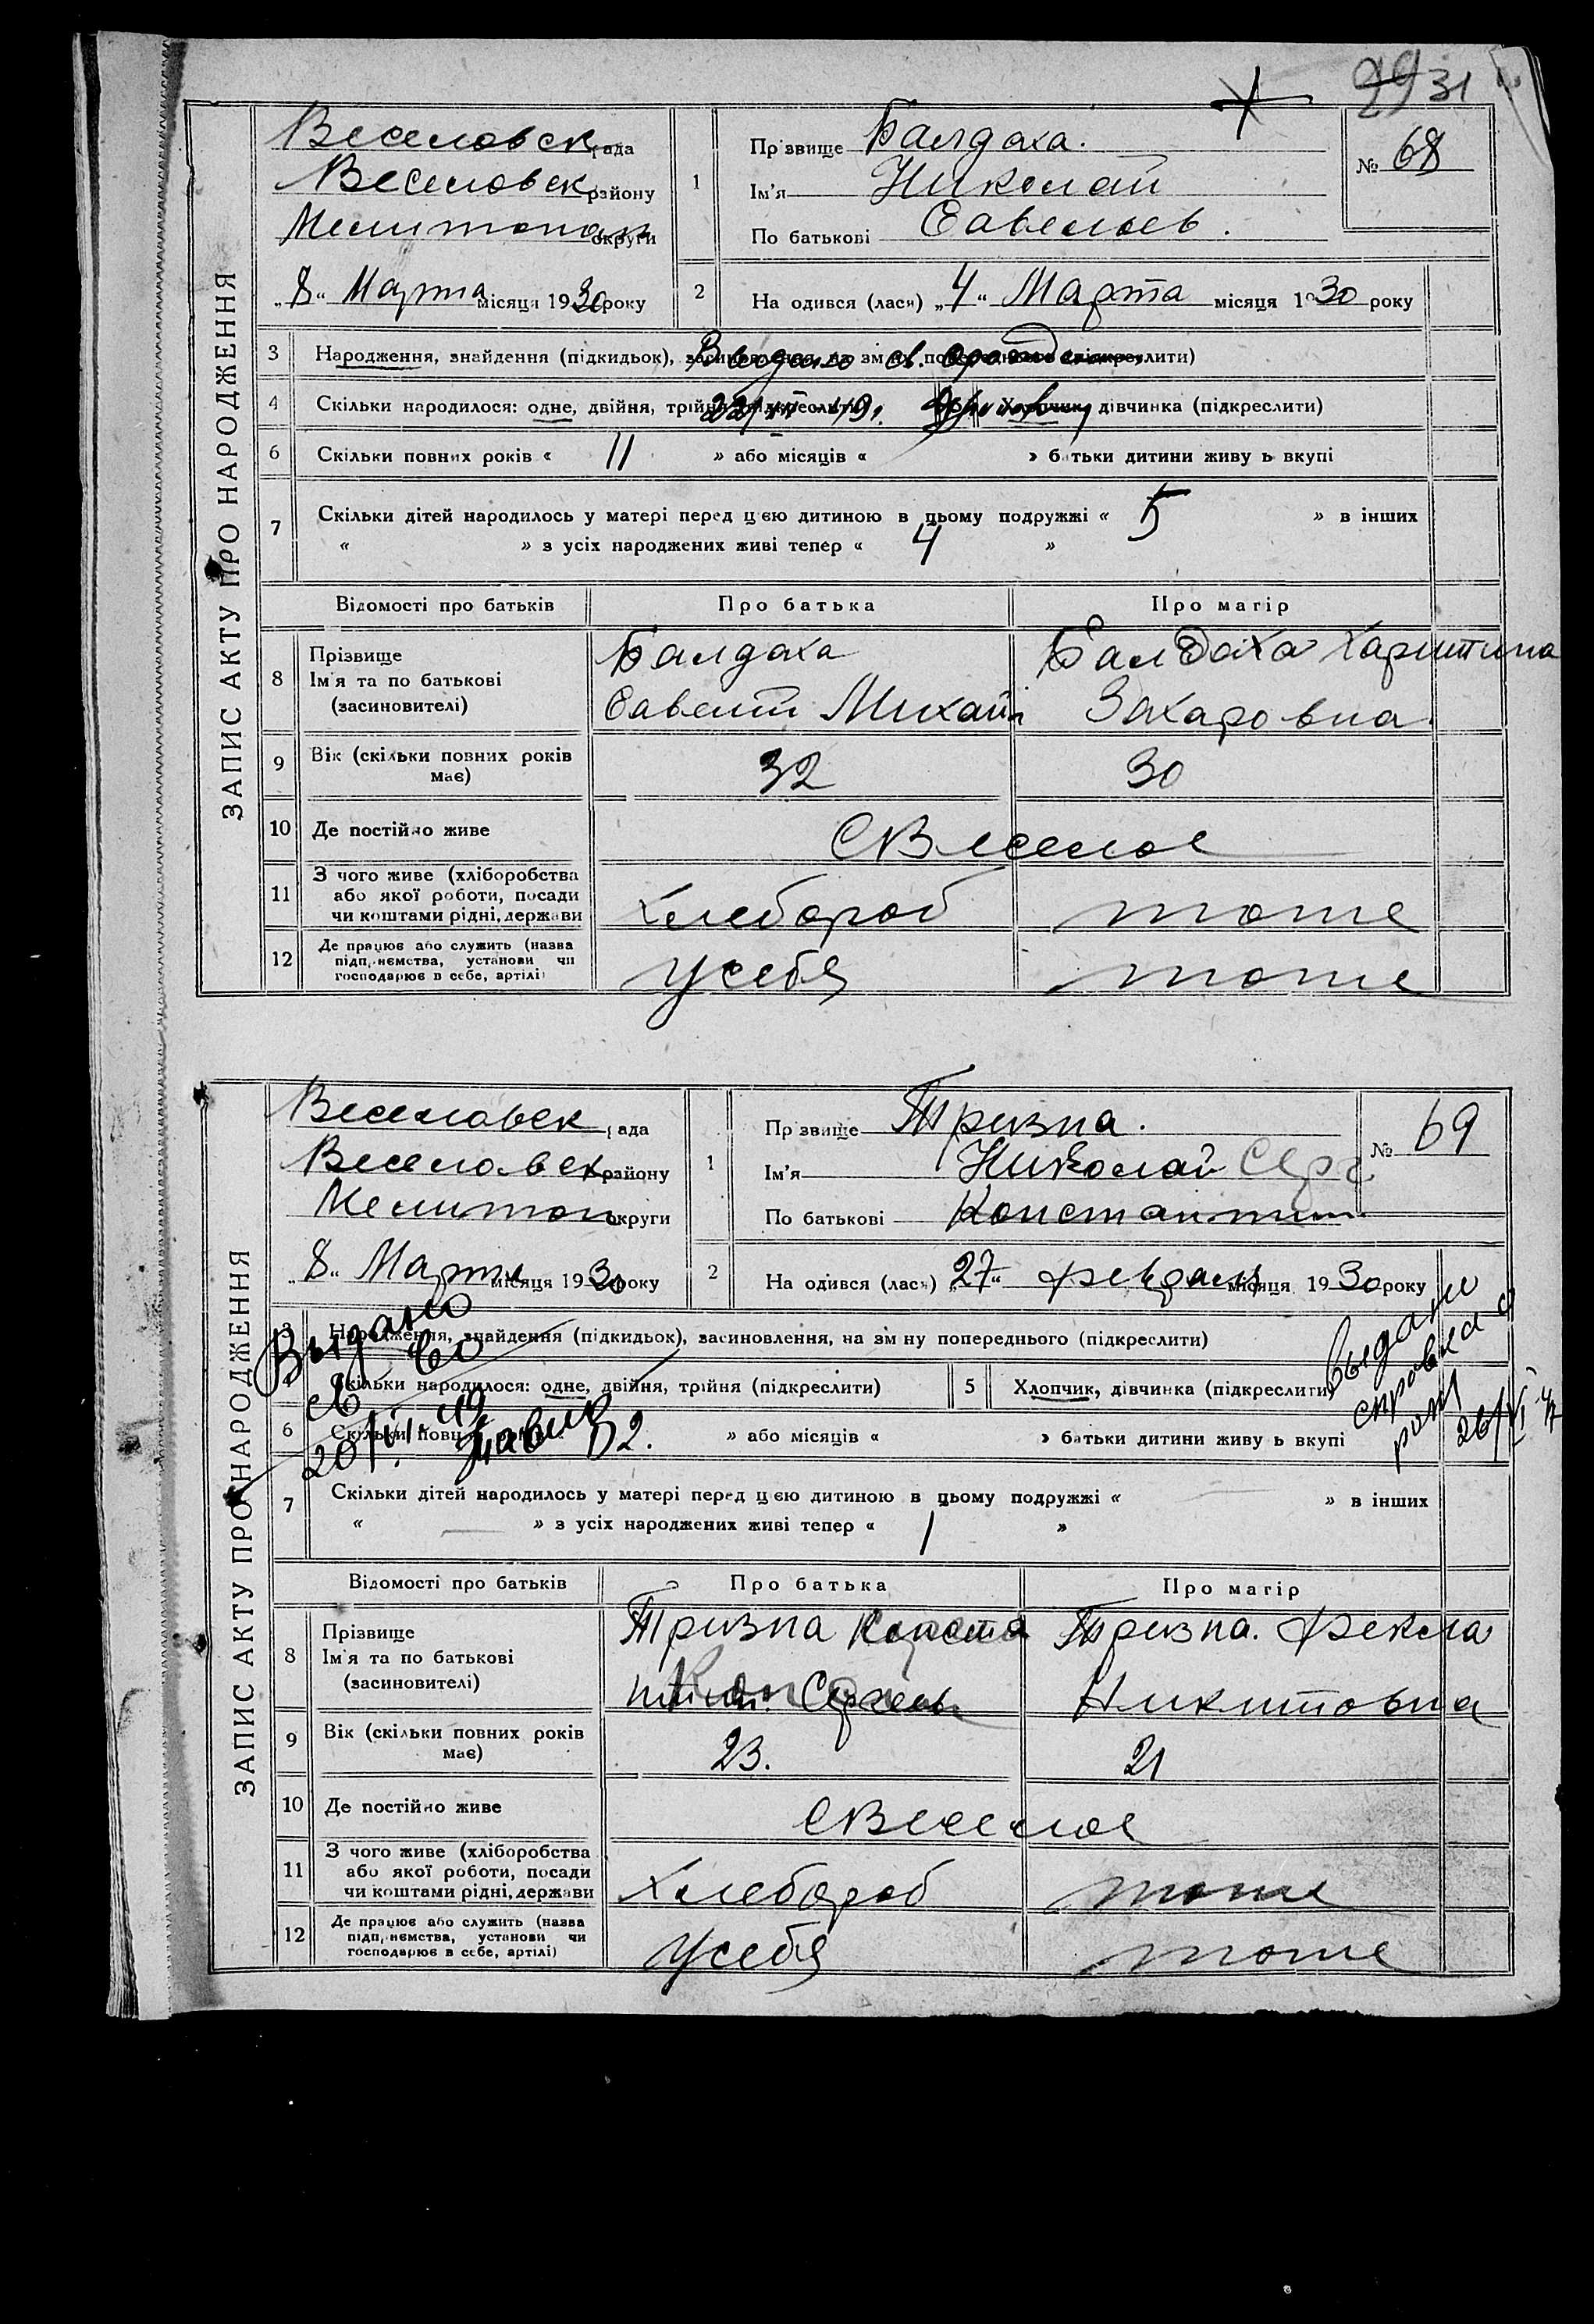 29 31
ЗАПИС АКТУ ПРО НАРОДЖЕННЯ
Веселовск рада
Веселовск району
Мелитопол округи
„8“ Марта місяця 1930 року
1
Прізвище Балдаха.
Ім'я Николай
По батькові Савельев.
№ 68
2
На одився (лася) „4“ Марта місяця 1930 року
3 Народження, знайдення (підкидьок), засиновлення, на зм ну попереднього (підкреслити)
Выдано св.
4 Скільки народилося: одне, двійня, трійня (підкреслити) Хлопчик, дівчинка (підкреслити)
22/VII 49г.
6 Скільки повних років « 11 » або місяців « » батьки дитини живу ь вкупі
7 Скільки дітей народилось у матері перед цією дитиною в цьому подружжі « 5 » в інших
« » з усіх народжених живі тепер « 4 »
Відомості про батьків Про батька Про матір
8 Прізвище Ім'я та по батькові (засиновителі)
Балдаха Балдаха Харитина
Савелий Михайл Захаровна
9 Вік (скільки повних років має) 32 30
10 Де постійно живе С Веселое
11 З чого живе (хліборобства або якої роботи, посади чи коштами рідні, держави
Хлебороб тоже
12 Де працює або служить (назва підприємства, установи чи господарює в себе, артілі)
У себя тоже
ЗАПИС АКТУ ПРО НАРОДЖЕННЯ
Веселовск рада
Веселовск району
Мелитоп округи
„8“ Марта місяця 1930 року
1
Прізвище Тризна.
Ім'я Николай Серг
По батькові Константин
№ 69
2
На одився (лася) „27“ февраля місяця 1930 року
3 Народження, знайдення (підкидьок), засиновлення, на зм ну попереднього (підкреслити)
Выдано
св
4 Скільки народилося: одне, двійня, трійня (підкреслити) 5 Хлопчик, дівчинка (підкреслити)
20/VI 49
выдана
справка о
рожд
26/VI 47
6 Скільки повних 2. » або місяців « » батьки дитини живу ь вкупі
7 Скільки дітей народилось у матері перед цією дитиною в цьому подружжі « — » в інших
« — » з усіх народжених живі тепер « 1 »
Відомості про батьків Про батька Про матір
8 Прізвище Ім'я та по батькові (засиновителі)
Тризна Конста Тризна. Фекла
нтин. Сергеев Никитовна
9 Вік (скільки повних років має) 23. 21
10 Де постійно живе С Веселое
11 З чого живе (хліборобства або якої роботи, посади чи коштами рідні, держави
Хлебороб тоже
12 Де працює або служить (назва підприємства, установи чи господарює в себе, артілі)
У себя тоже